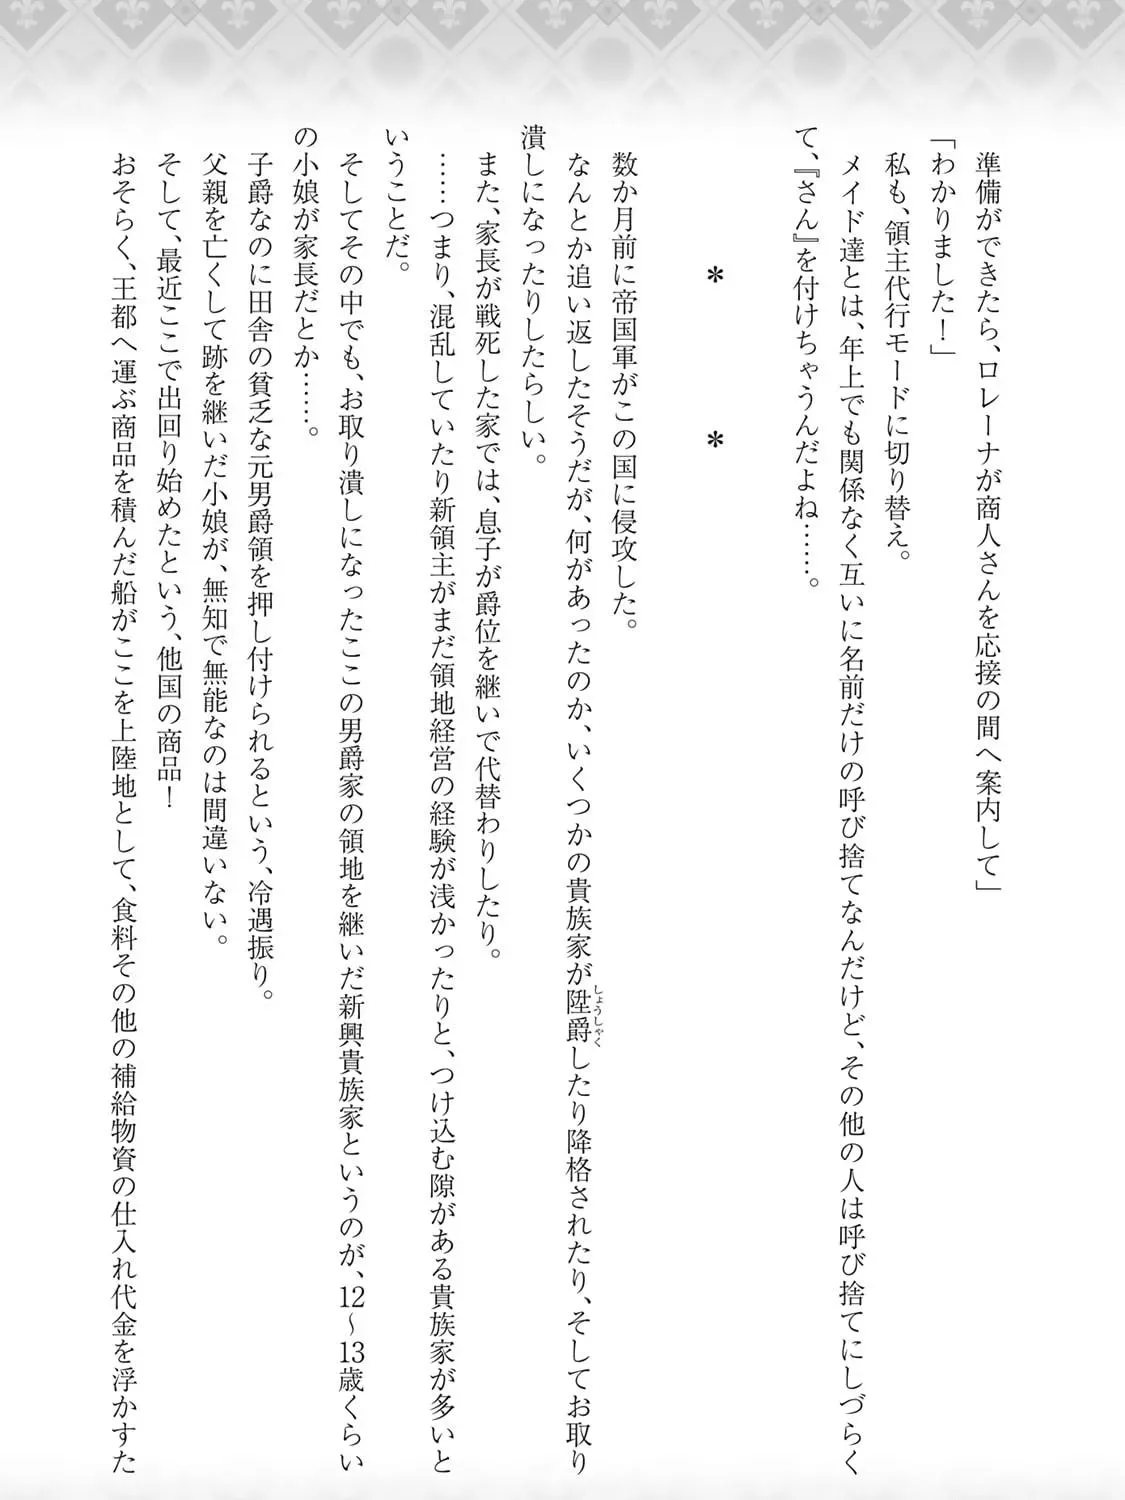 準備ができたら、ロレーナが商人さんを応接の間へ案内して」
「わかりました！」
私も、領主代行モードに切り替え。
メイド達とは、年上でも関係なく互いに名前だけの呼び捨てなんだけど、その他の人は呼び捨てにしづらく
て、『さん』を付けちゃうんだよね……。
＊　＊
数か月前に帝国軍がこの国に侵攻した。
なんとか追い返したそうだが、何があったのか、いくつかの貴族家が陞爵したり降格されたり、そしてお取り
しょうしゃく
潰しになったりしたらしい。
また、家長が戦死した家では、息子が爵位を継いで代替わりしたり。
……つまり、混乱していたり新領主がまだ領地経営の経験が浅かったりと、つけ込む隙がある貴族家が多いと
いうことだ。
そしてその中でも、お取り潰しになったここの男爵家の領地を継いだ新興貴族家というのが、12～13歳くらい
の小娘が家長だとか……。
子爵なのに田舎の貧乏な元男爵領を押し付けられるという、冷遇振り。
父親を亡くして跡を継いだ小娘が、無知で無能なのは間違いない。
そして、最近ここで出回り始めたという、他国の商品！
おそらく、王都へ運ぶ商品を積んだ船がここを上陸地として、食料その他の補給物資の仕入れ代金を浮かすた